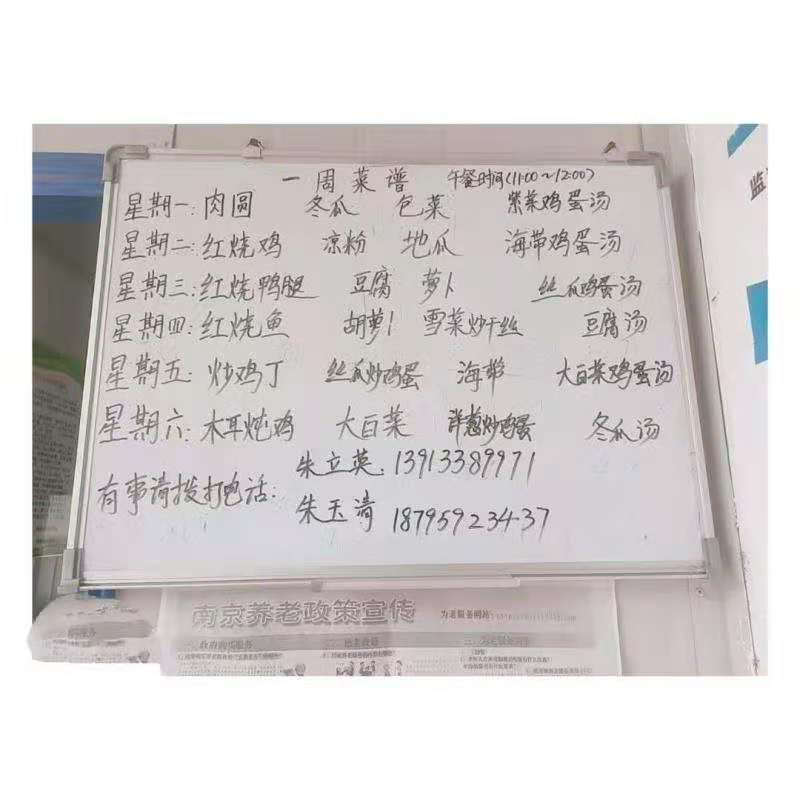 一周菜谱 午餐时间(11:00~12:00)
星期一:肉圆 冬瓜 包菜 紫菜鸡蛋汤
星期二:红烧鸡 凉粉 地瓜 海带鸡蛋汤
星期三:红烧鸭腿 豆腐 萝卜 丝瓜鸡蛋汤
星期四:红烧鱼 胡萝卜 雪菜炒干丝 豆腐汤
星期五:炒鸡丁 丝瓜炒鸡蛋 海带 大白菜鸡蛋汤
星期六:木耳炖鸡 大白菜 洋葱炒鸡蛋 冬瓜汤
有事请拨打电话:
朱立英.13913389971
朱玉清 18795923437
监
南京养老政策宣传 为老服务网站: